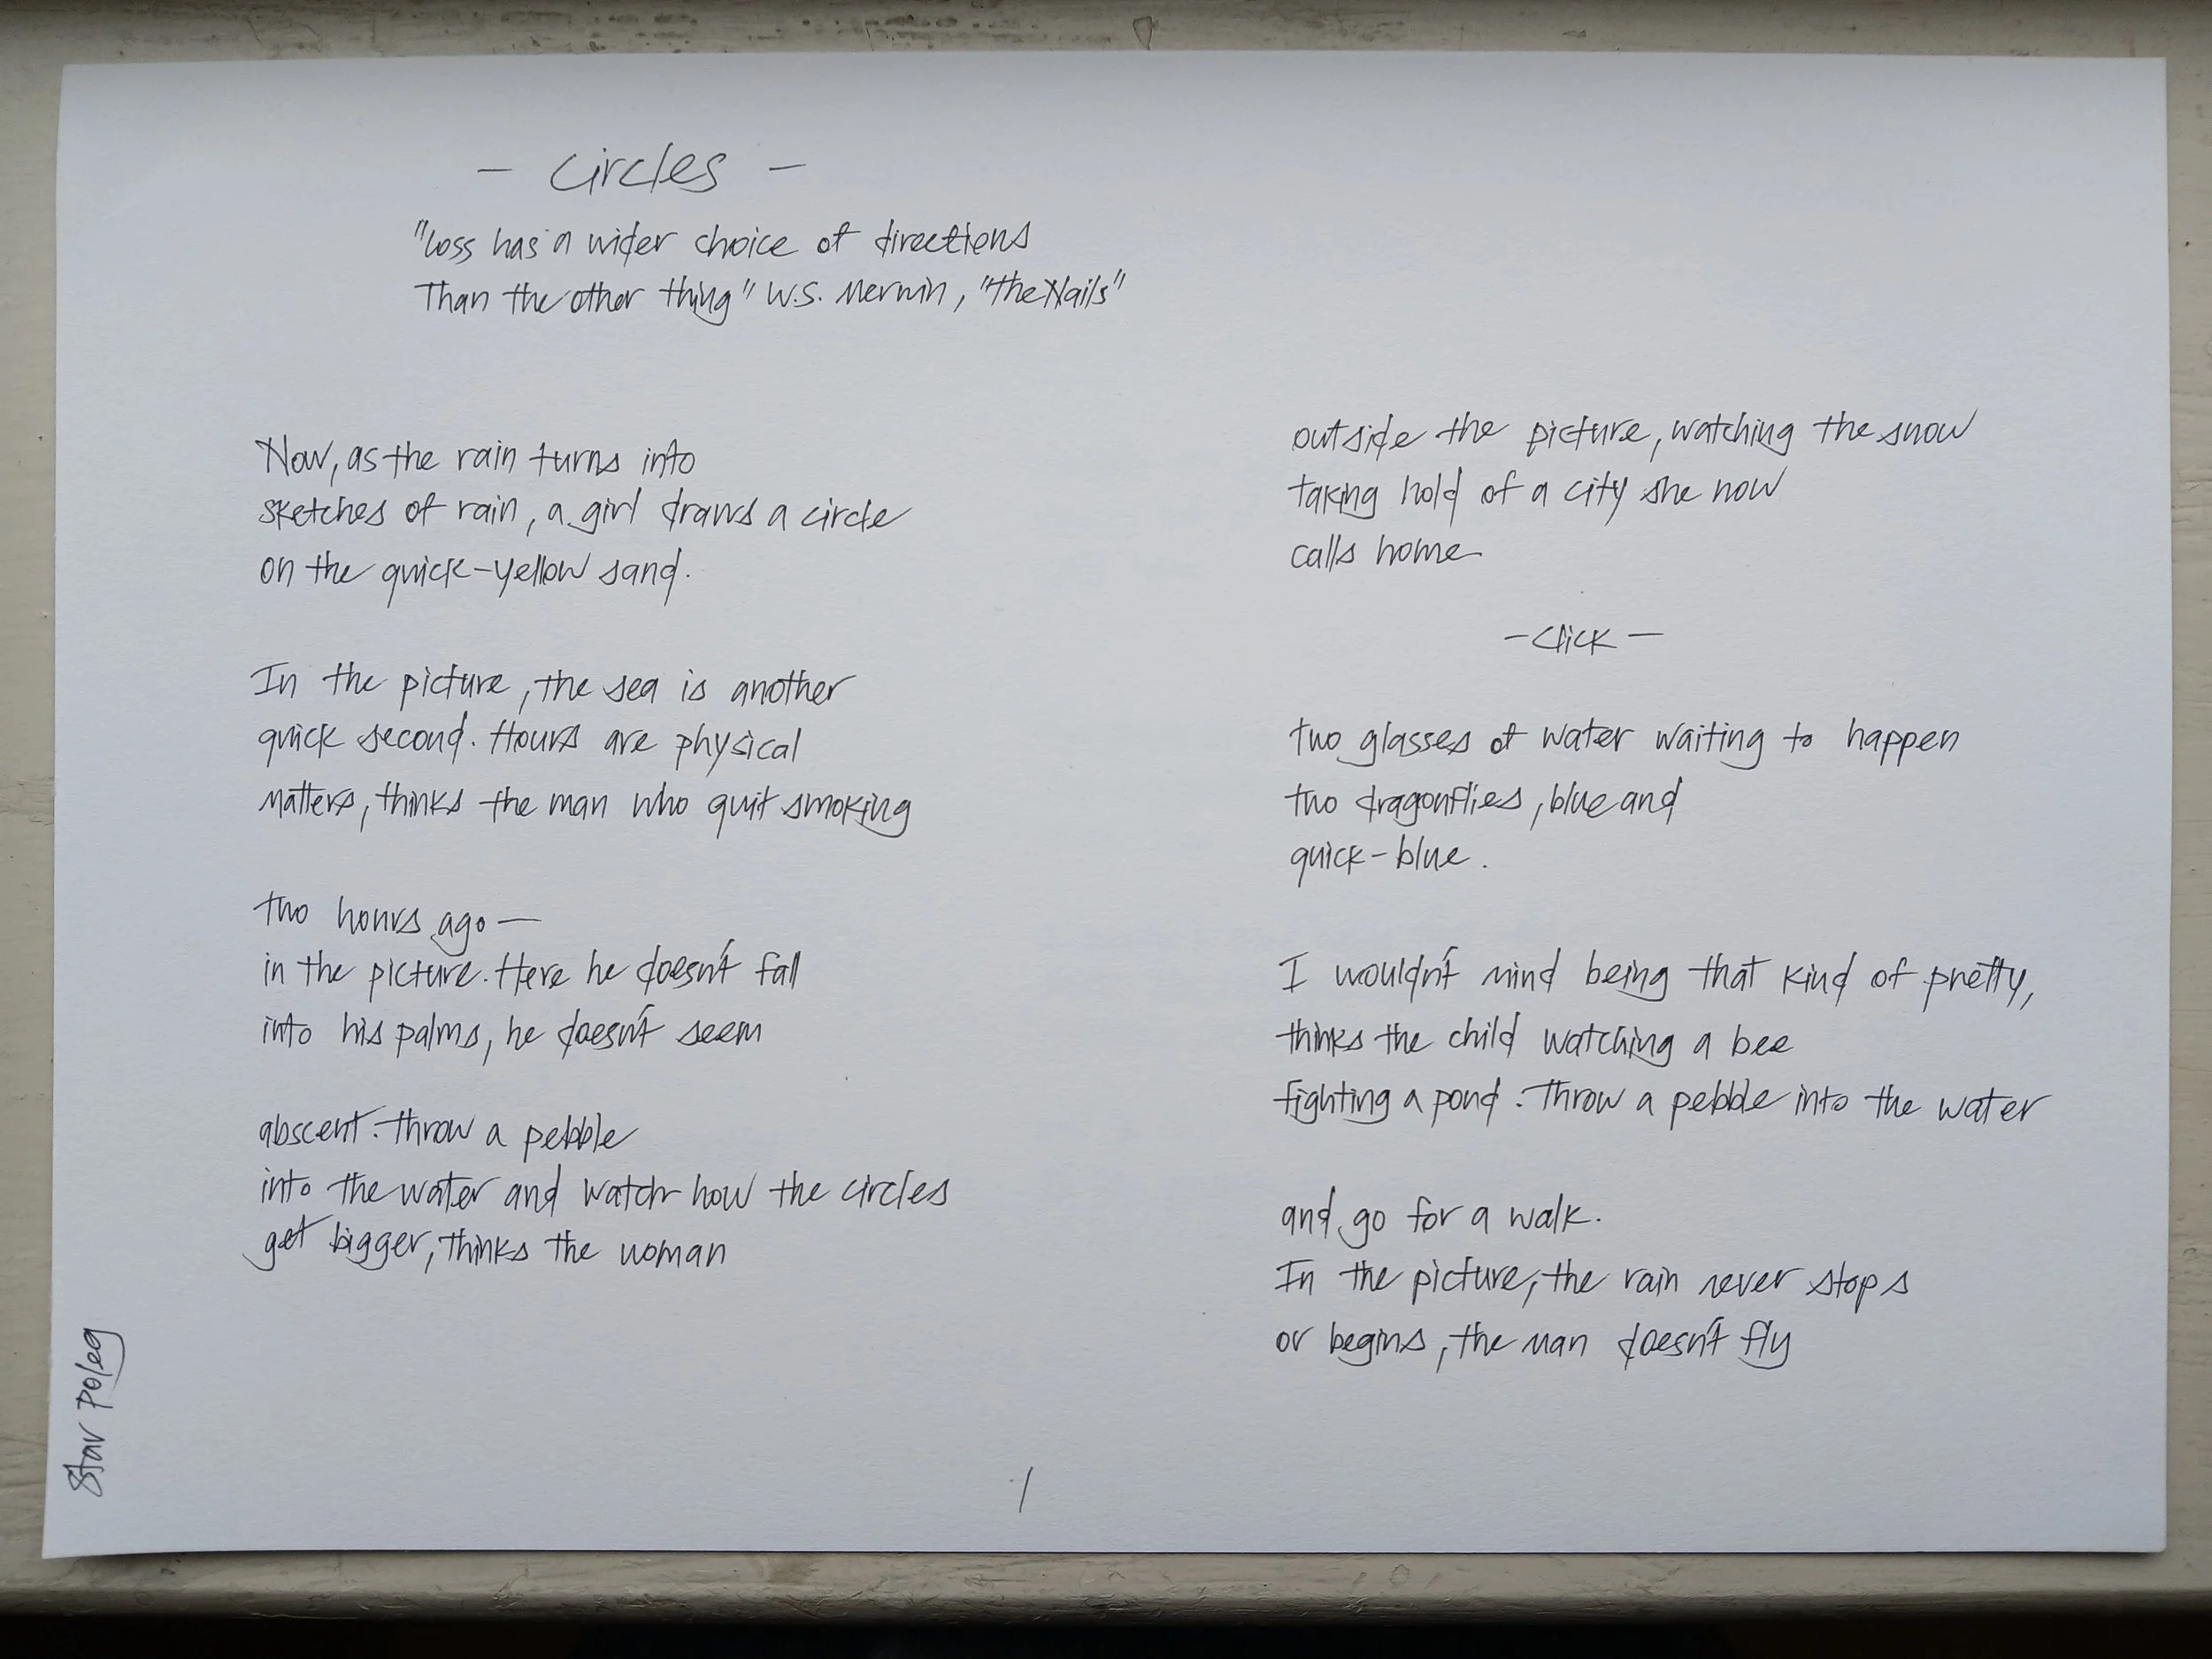 - Circles -
"Loss has a wider choice of directions
Than the other thing" W.S. Merwin, "The Nails"
Now, as the rain turns into
sketches of rain, a girl draws a circle
on the quick-yellow sand.
In the picture, the sea is another
quick second. Hours are physical
matters, thinks the man who quit smoking
two hours ago —
in the picture. Here he doesn't fall
into his palms, he doesn't seem
abscent. Throw a pebble
into the water and watch how the circles
get bigger, thinks the woman
outside the picture, watching the snow
taking hold of a city she now
calls home
- Click -
two glasses of water waiting to happen
two dragonflies, blue and
quick-blue.
I wouldn't mind being that kind of pretty,
thinks the child watching a bee
fighting a pond. Throw a pebble into the water
and go for a walk.
In the picture, the rain never stops
or begins, the man doesn't fly
Stav Poleg
1